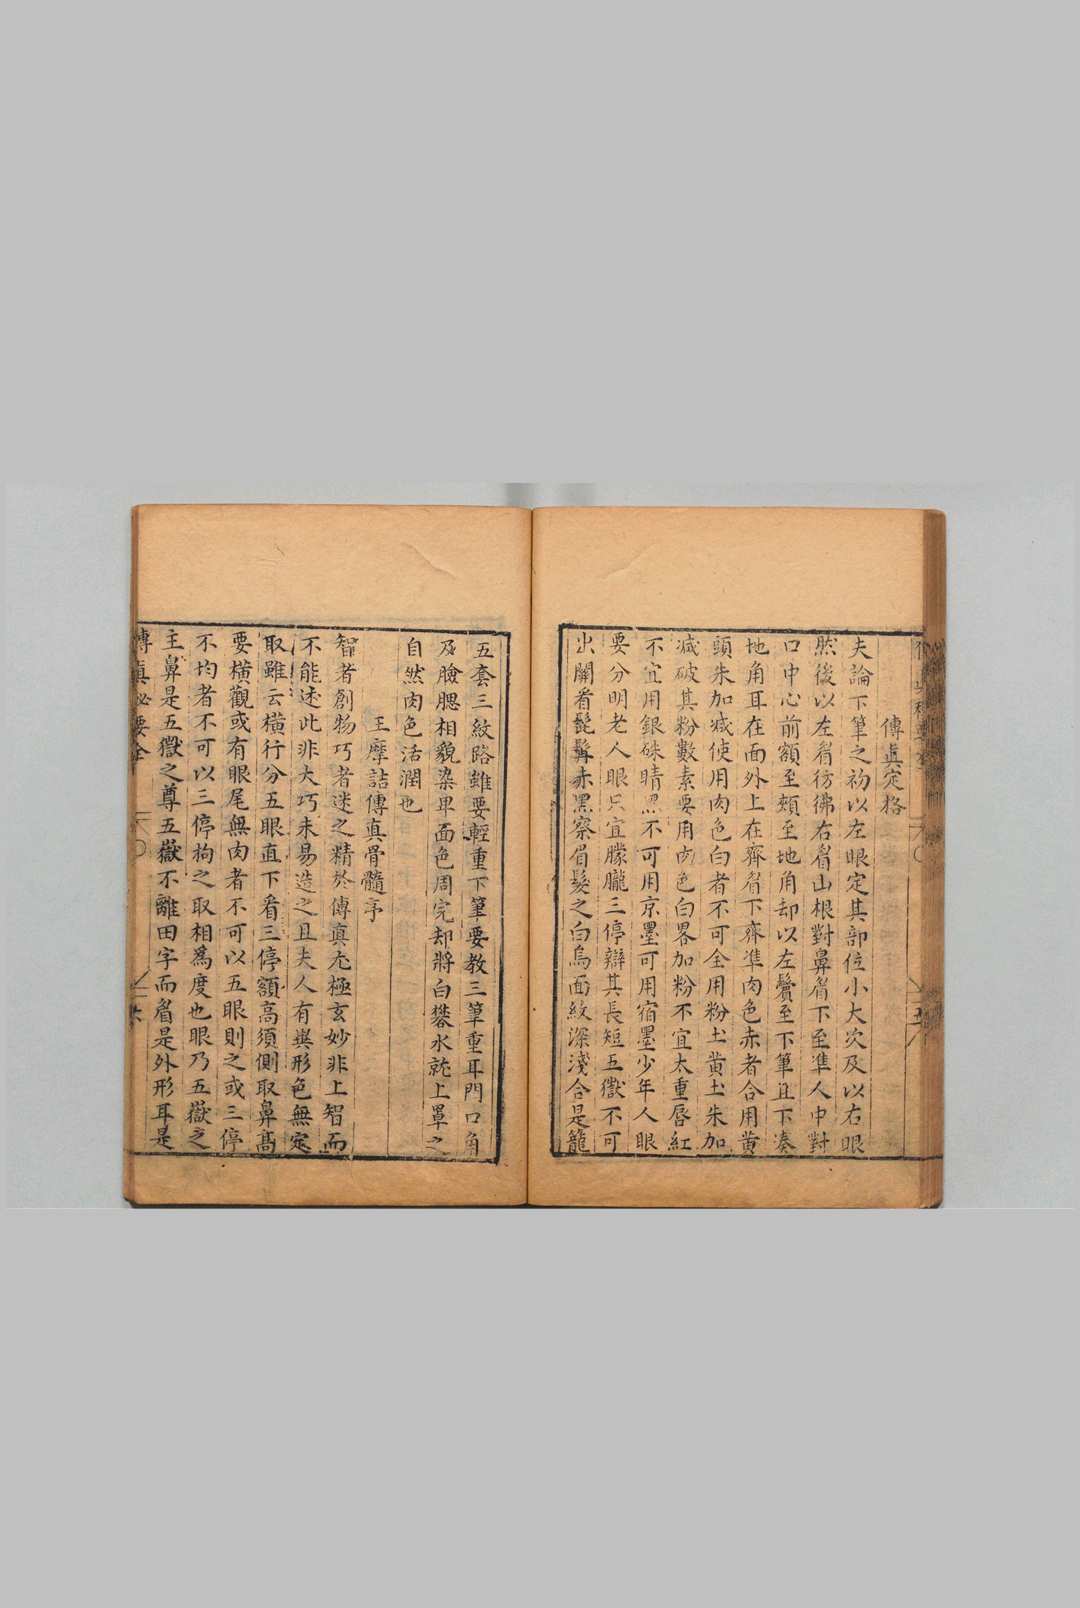 傳真定格
夫論下筆之初以左眼定其部位小大次及以右眼
然後以左眉彷彿右眉山根對鼻眉下至準人中對
口中心前額至頰至地角却以左鬢至下筆且下湊
地角耳在面外上在齊眉下齊準肉色赤者合用黄
頭朱加减使用肉色白者不可全用粉土黄土朱加
减破其粉數素要用肉色白畧加粉不宜太重唇紅
不宜用銀硃睛黑不可用京墨可用宿墨少年人眼
要分明老人眼只宜朦朧三停辯其長短五嶽不可
出關看髭髯赤黑察眉髮之白烏面紋深淺合是籠
五套三紋路雖要輕重下筆要教三筆重耳門口角
及臉腮相貌染畢面色周完却將白礬水就上罩之
自然肉色活潤也
王摩詰傳真骨髓序
智者創物巧者述之精於傳真尤極玄妙非上智而
不能述此非大巧未易造之且夫人有異形色無定
取雖云橫行分五眼直下看三停額高須側取鼻髙
要橫觀或有眼尾無肉者不可以五眼則之或三停
不均者不可以三停拘之取相爲度也眼乃五嶽之
主鼻是五嶽之尊五嶽不離田字而眉是外形耳是
傳真秘要全
六